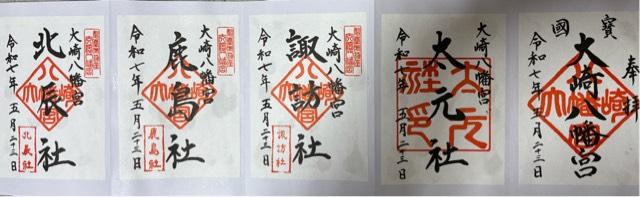 奉拝
國寶
大崎八幡宮
令和七年 五月二十三日
大崎八幡宮
太元社
令和七年 五月二十三日
大崎八幡宮
諏訪社
諏訪社
令和七年 五月二十三日
大崎八幡宮
鹿島社
鹿島社
令和七年 五月二十三日
大崎八幡宮
北辰社
北辰社
令和七年 五月二十三日